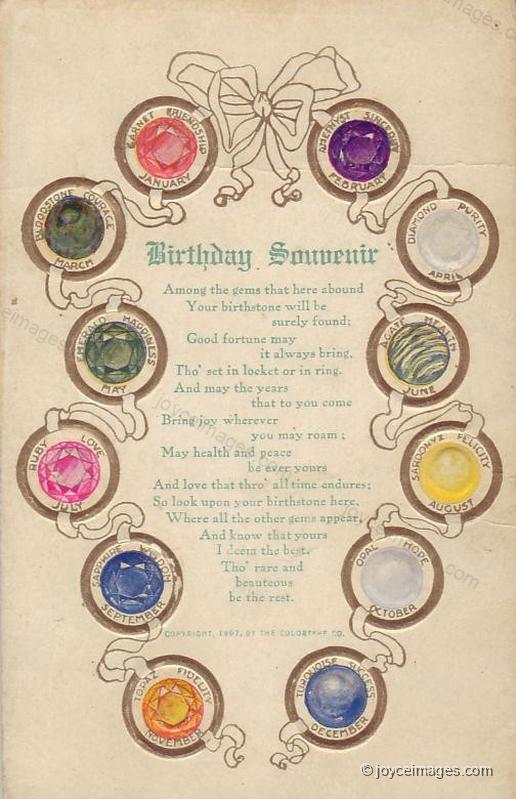 GARNET FRIENDSHIP
JANUARY
AMETHYST SINCERITY
FEBRUARY
BLOODSTONE COURAGE
MARCH
DIAMOND PURITY
APRIL
Birthday Souvenir
Among the gems that here abound
Your birthstone will be
surely found;
Good fortune may
it always bring,
Tho' set in locket or in ring.
And may the years
that to you come
Bring joy wherever
you may roam;
May health and peace
be ever yours
And love that thro' all time endures;
So look upon your birthstone here,
Where all the other gems appear,
And know that yours
I deem the best,
Tho' rare and
beauteous
be the rest.
EMERALD HAPPINESS
MAY
AGATE HEALTH
JUNE
RUBY LOVE
JULY
SARDONYX FELICITY
AUGUST
SAPPHIRE WISDOM
SEPTEMBER
OPAL HOPE
OCTOBER
COPYRIGHT, 1907, BY THE COLORTYPE CO.
TOPAZ FIDELITY
NOVEMBER
TURQUOISE SUCCESS
DECEMBER
joyceimages.com
joyceimages.com
© joyceimages.com